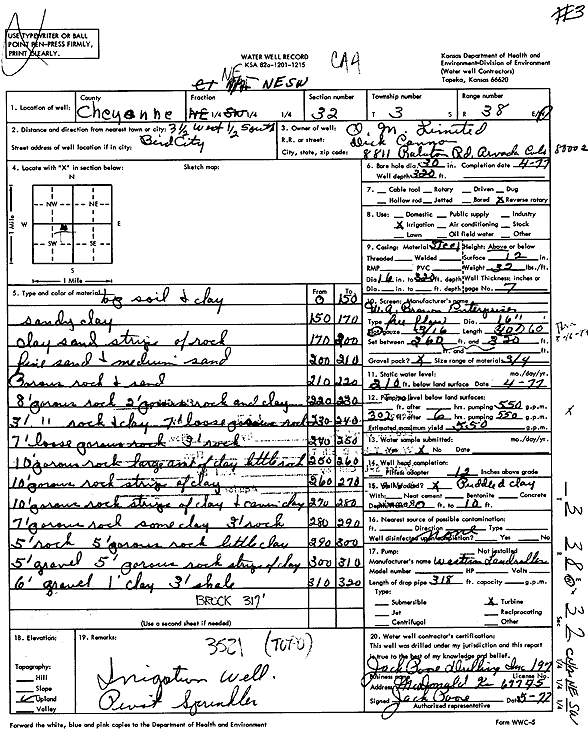 #3
USE TYPEWRITER OR BALL
POINT PEN-PRESS FIRMLY,
PRINT CLEARLY.
WATER WELL RECORD
KSA 82a-1201-1215
CA4
Kansas Department of Health and
Environment-Division of Environment
(Water well Contractors)
Topeka, Kansas 66620
NE NESW
1. Location of well:
County
Cheyenne
Fraction
NE 1/4 SW 1/4 1/4
Section number
32
Township number
T 3 S
Range number
R 38 E/W
2. Distance and direction from nearest town or city: 3 1/2 West 1/2 South
Street address of well location if in city: Bird City
3. Owner of well: O. M. Limited
R.R. or street: Dick Cannon
City, state, zip code: 8811 Ralston Rd. Arvada Colo 80002
4. Locate with "X" in section below:
Sketch map:
N
NW NE
W E
SW SE
S
1 Mile
1 Mile
6. Bore hole dia. 30 in. Completion date 4-77
Well depth 320 ft.
7. Cable tool Rotary Driven Dug
Hollow rod Jetted Bored X Reverse rotary
8. Use: Domestic Public supply Industry
X Irrigation Air conditioning Stock
Lawn Oil field water Other
9. Casing: Material Steel Height: Above or below
Threaded Welded Surface 12 in.
RMP PVC Weight 32 lbs./ft.
Dia. 16 in. to 320 ft. depth Wall Thickness: inches or
Dia. in. to ft. depth gage No. 7
5. Type and color of material From To
big soil & clay 0 150
sandy clay 150 170
clay sand strips of rock 170 200
fine sand & medium sand 200 210
Porous rock & sand 210 220
8' porous rock 2' porous rock and clay 220 230
3' " rock & clay 7' loose porous rock 230 240
7' loose porous rock 3' rock 240 250
10' porous rock large amt of clay little rock 250 260
10' porous rock strips of clay 260 270
10' porous rock strips of clay & cann clay 270 280
7' porous rock some clay 3' rock 280 290
5' rock 5' porous rock little clay 290 300
5' gravel 5' porous rock strips of clay 300 310
6' gravel 1' clay 3' shale 310 320
BROCK 317'
(Use a second sheet if needed)
10. Screen: Manufacturer's name
Type Dia. 16"
Slot/gauze 3/16 Length 60
Set between 260 ft. and 320 ft.
ft. and ft.
Gravel pack? X Size range of material 3/4
11. Static water level: mo./day/yr.
210 ft. below land surface Date 4-77
12. Pumping level below land surfaces:
ft. after hrs. pumping 550 g.p.m.
ft. after 6 hrs. pumping 550 g.p.m.
Estimated maximum yield 550 g.p.m.
13. Water sample submitted: mo./day/yr.
Yes X No Date
14. Well head completion:
Pitless adapter 12 Inches above grade
15. Well grouted? X Puddled clay
With: Neat cement Bentonite Concrete
Depth: From 0 ft. to 10 ft.
16. Nearest source of possible contamination:
ft. Direction Type
Well disinfected upon completion? Yes No
17. Pump: Not installed
Manufacturer's name Western Landroller
Model number HP Volts
Length of drop pipe 318 ft. capacity g.p.m.
Type:
Submersible X Turbine
Jet Reciprocating
Centrifugal Other
18. Elevation:
Topography:
Hill
Slope
Upland
Valley
19. Remarks:
3521 (TOPO)
Irrigation Well.
Pivot Sprinkler
20. Water well contractor's certification:
This well was drilled under my jurisdiction and this report
is true to the best of my knowledge and belief.
Jack Pope Drilling Inc 197
Business name License No.
Address McDonald Ks 67745
Signed Jack Pope Date 5-77
Authorized representative
Forward the white, blue and pink copies to the Department of Health and Environment
Form WWC-5